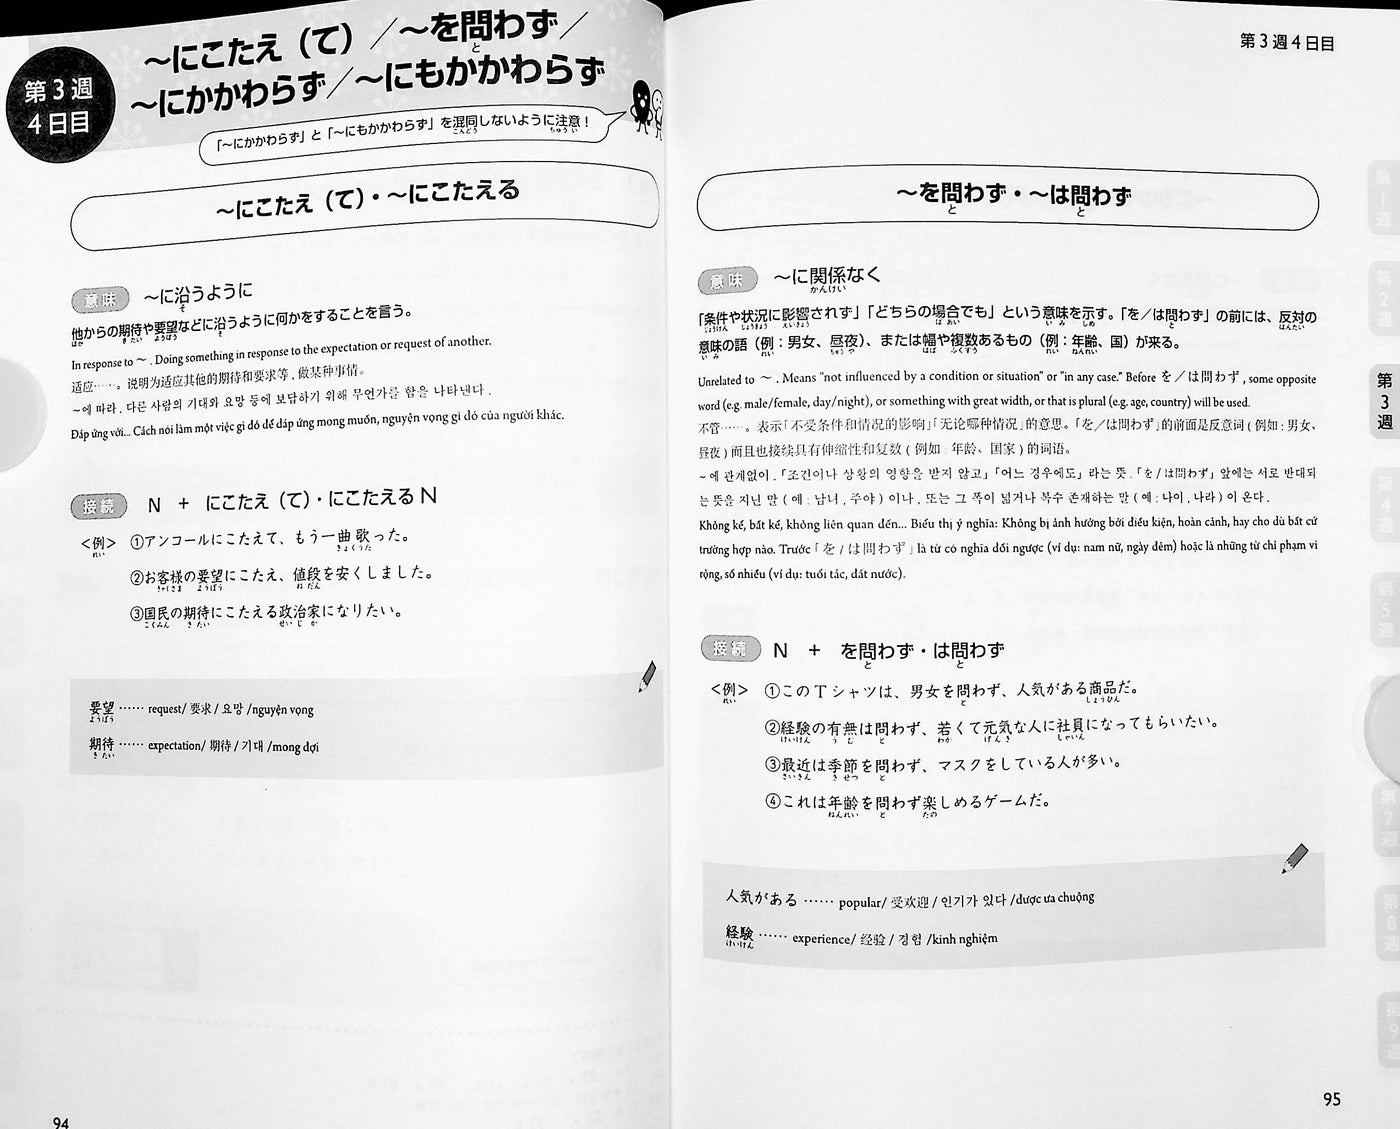 第3週
4日目
～にこたえ（て）／～を問わず／
～にかかわらず／～にもかかわらず
「～にかかわらず」と「～にもかかわらず」を混同しないように注意！
～にこたえ（て）・～にこたえる
意味 ～に沿うように
他からの期待や要望などに沿うように何かをすることを言う。
In response to ～ . Doing something in response to the expectation or request of another.
适应……。说明为适应其他的期待和要求等，做某种事情。
~에 따라 . 다른 사람의 기대와 요망 등에 보답하기 위해 무언가를 함을 나타낸다 .
Đáp ứng với... Cách nói làm một việc gì đó để đáp ứng mong muốn, nguyện vọng gì đó của người khác.
接続 N ＋ にこたえ（て）・にこたえる N
<例> ①アンコールにこたえて、もう一曲歌った。
②お客様の要望にこたえ、値段を安くしました。
③国民の期待にこたえる政治家になりたい。
要望 …… request/ 要求 / 요망 /nguyện vọng
期待 …… expectation/ 期待 / 기대 /mong đợi
94
第3週4日目
～を問わず・～は問わず
意味 ～に関係なく
「条件や状況に影響されず」「どちらの場合でも」という意味を示す。「を／は問わず」の前には、反対の
意味の語（例：男女、昼夜）、または幅や複数あるもの（例：年齢、国）が来る。
Unrelated to ～ . Means "not influenced by a condition or situation" or "in any case." Before を／は問わず , some opposite
word (e.g. male/female, day/night), or something with great width, or that is plural (e.g. age, country) will be used.
不管……。表示「不受条件和情况的影响」「无论哪种情况」的意思。「を／は問わず」的前面是反意词 ( 例如 : 男女、
昼夜 ) 而且也接续具有伸缩性和复数 ( 例如 : 年龄、国家 ) 的词语。
~에 관계없이 . 「조건이나 상황의 영향을 받지 않고」「어느 경우에도」 라는 뜻 . 「を/は問わず」 앞에는 서로 반대되
는 뜻을 지닌 말 ( 예 : 남녀 , 주야 ) 이나 , 또는 그 폭이 넓거나 복수 존재하는 말 ( 예 : 나이 , 나라 ) 이 온다 .
Không kể, bất kể, không liên quan đến... Biểu thị ý nghĩa: Không bị ảnh hưởng bởi điều kiện, hoàn cảnh, hay cho dù bất cứ
trường hợp nào. Trước「を / は問わず」là từ có nghĩa đối ngược (ví dụ: nam nữ, ngày đêm) hoặc là những từ chỉ phạm vi
rộng, số nhiều (ví dụ: tuổi tác, đất nước).
接続 N ＋ を問わず・は問わず
<例> ①このTシャツは、男女を問わず、人気がある商品だ。
②経験の有無は問わず、若くて元気な人に社員になってもらいたい。
③最近は季節を問わず、マスクをしている人が多い。
④これは年齢を問わず楽しめるゲームだ。
人気がある …… popular/ 受欢迎 / 인기가 있다 /được ưa chuộng
経験 …… experience/ 经验 / 경험 /kinh nghiệm
第3週
95